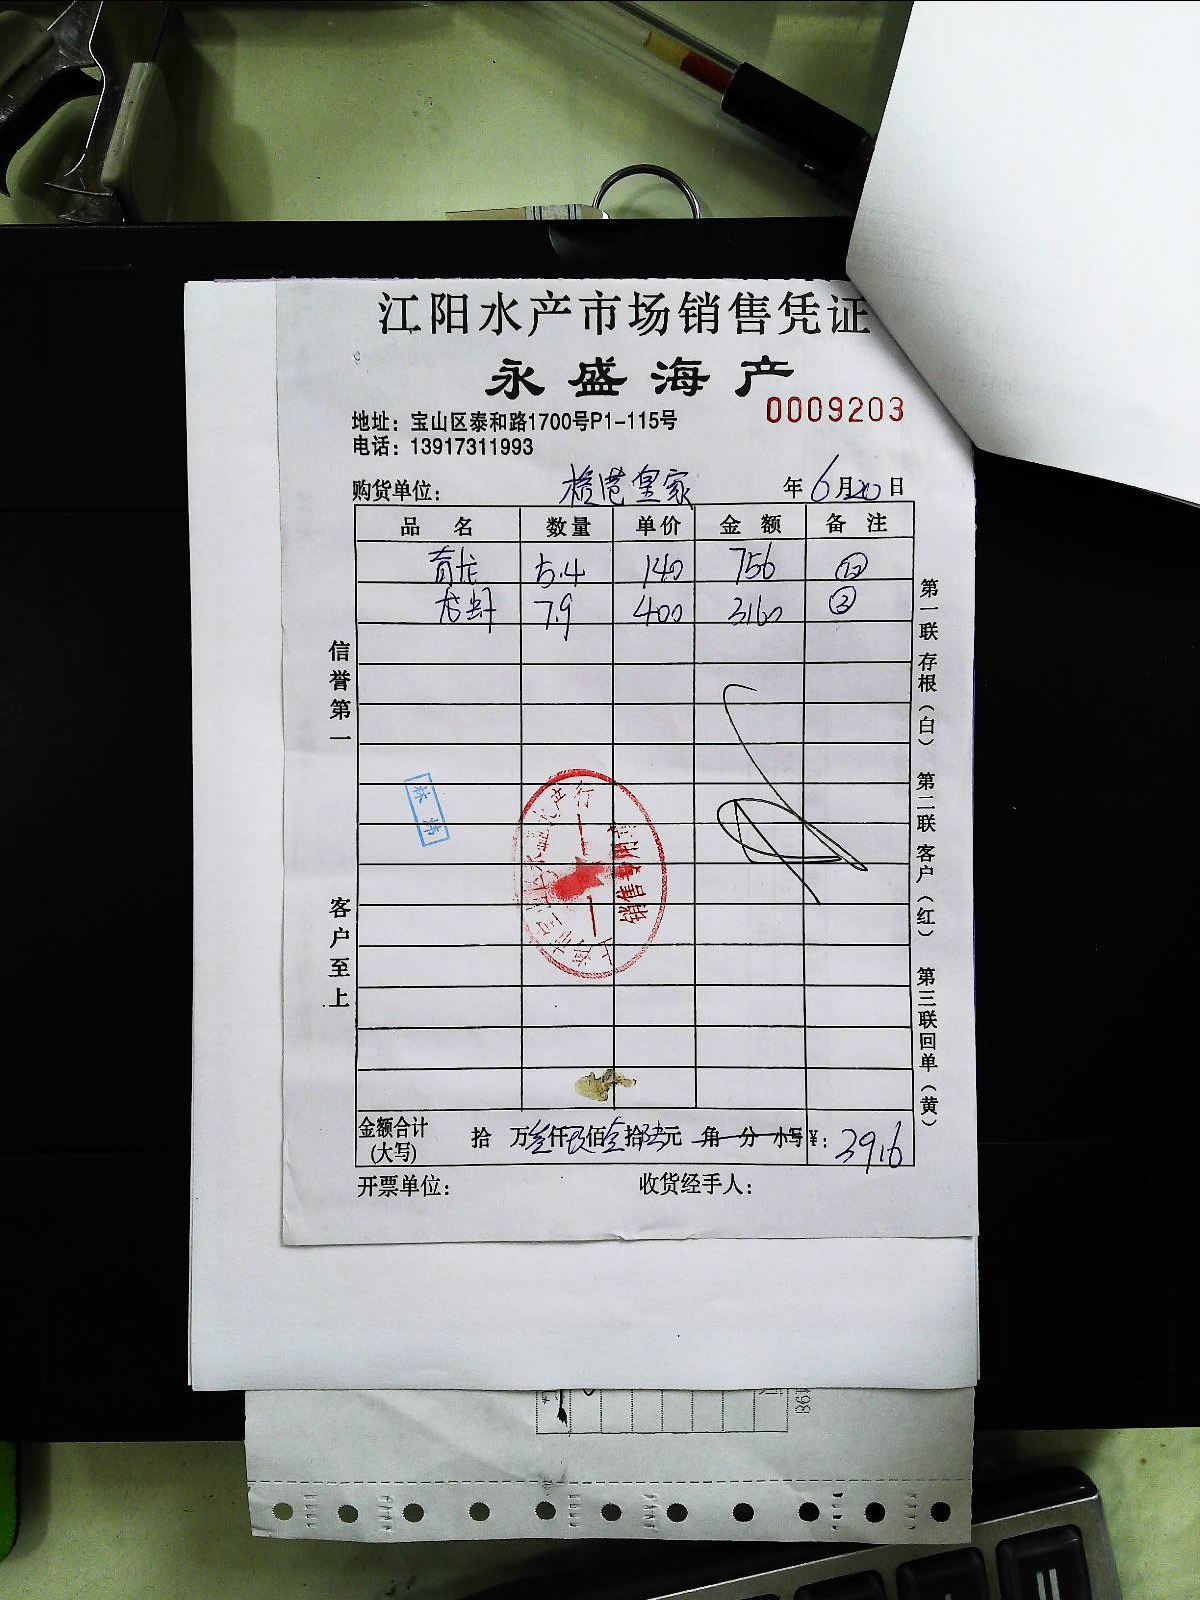 江阳水产市场销售凭证
永盛海产
0009203
地址：宝山区泰和路1700号P1-115号
电话：13917311993
购货单位： 皇家 年6月20日
品名 数量 单价 金额 备注
青龙 5.4 140 756 ⑫
龙虾 7.9 400 3160 ②
信誉第一
客户至上
第一联 存根（白） 第二联 客户（红） 第三联 回单（黄）
林炜
销售专用章
金额合计（大写） 拾 万叁仟玖佰壹拾陆元 角 分 小写￥：3916
开票单位： 收货经手人：